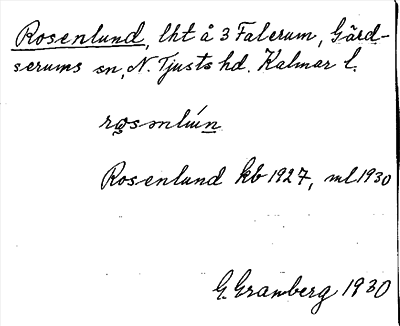 Rosenlund, lht å 3 Falerum, Gärd-
serums sn, N. Tjusts hd. Kalmar l.
Rosenlund kb 1927, ml 1930
G. Granberg 1930